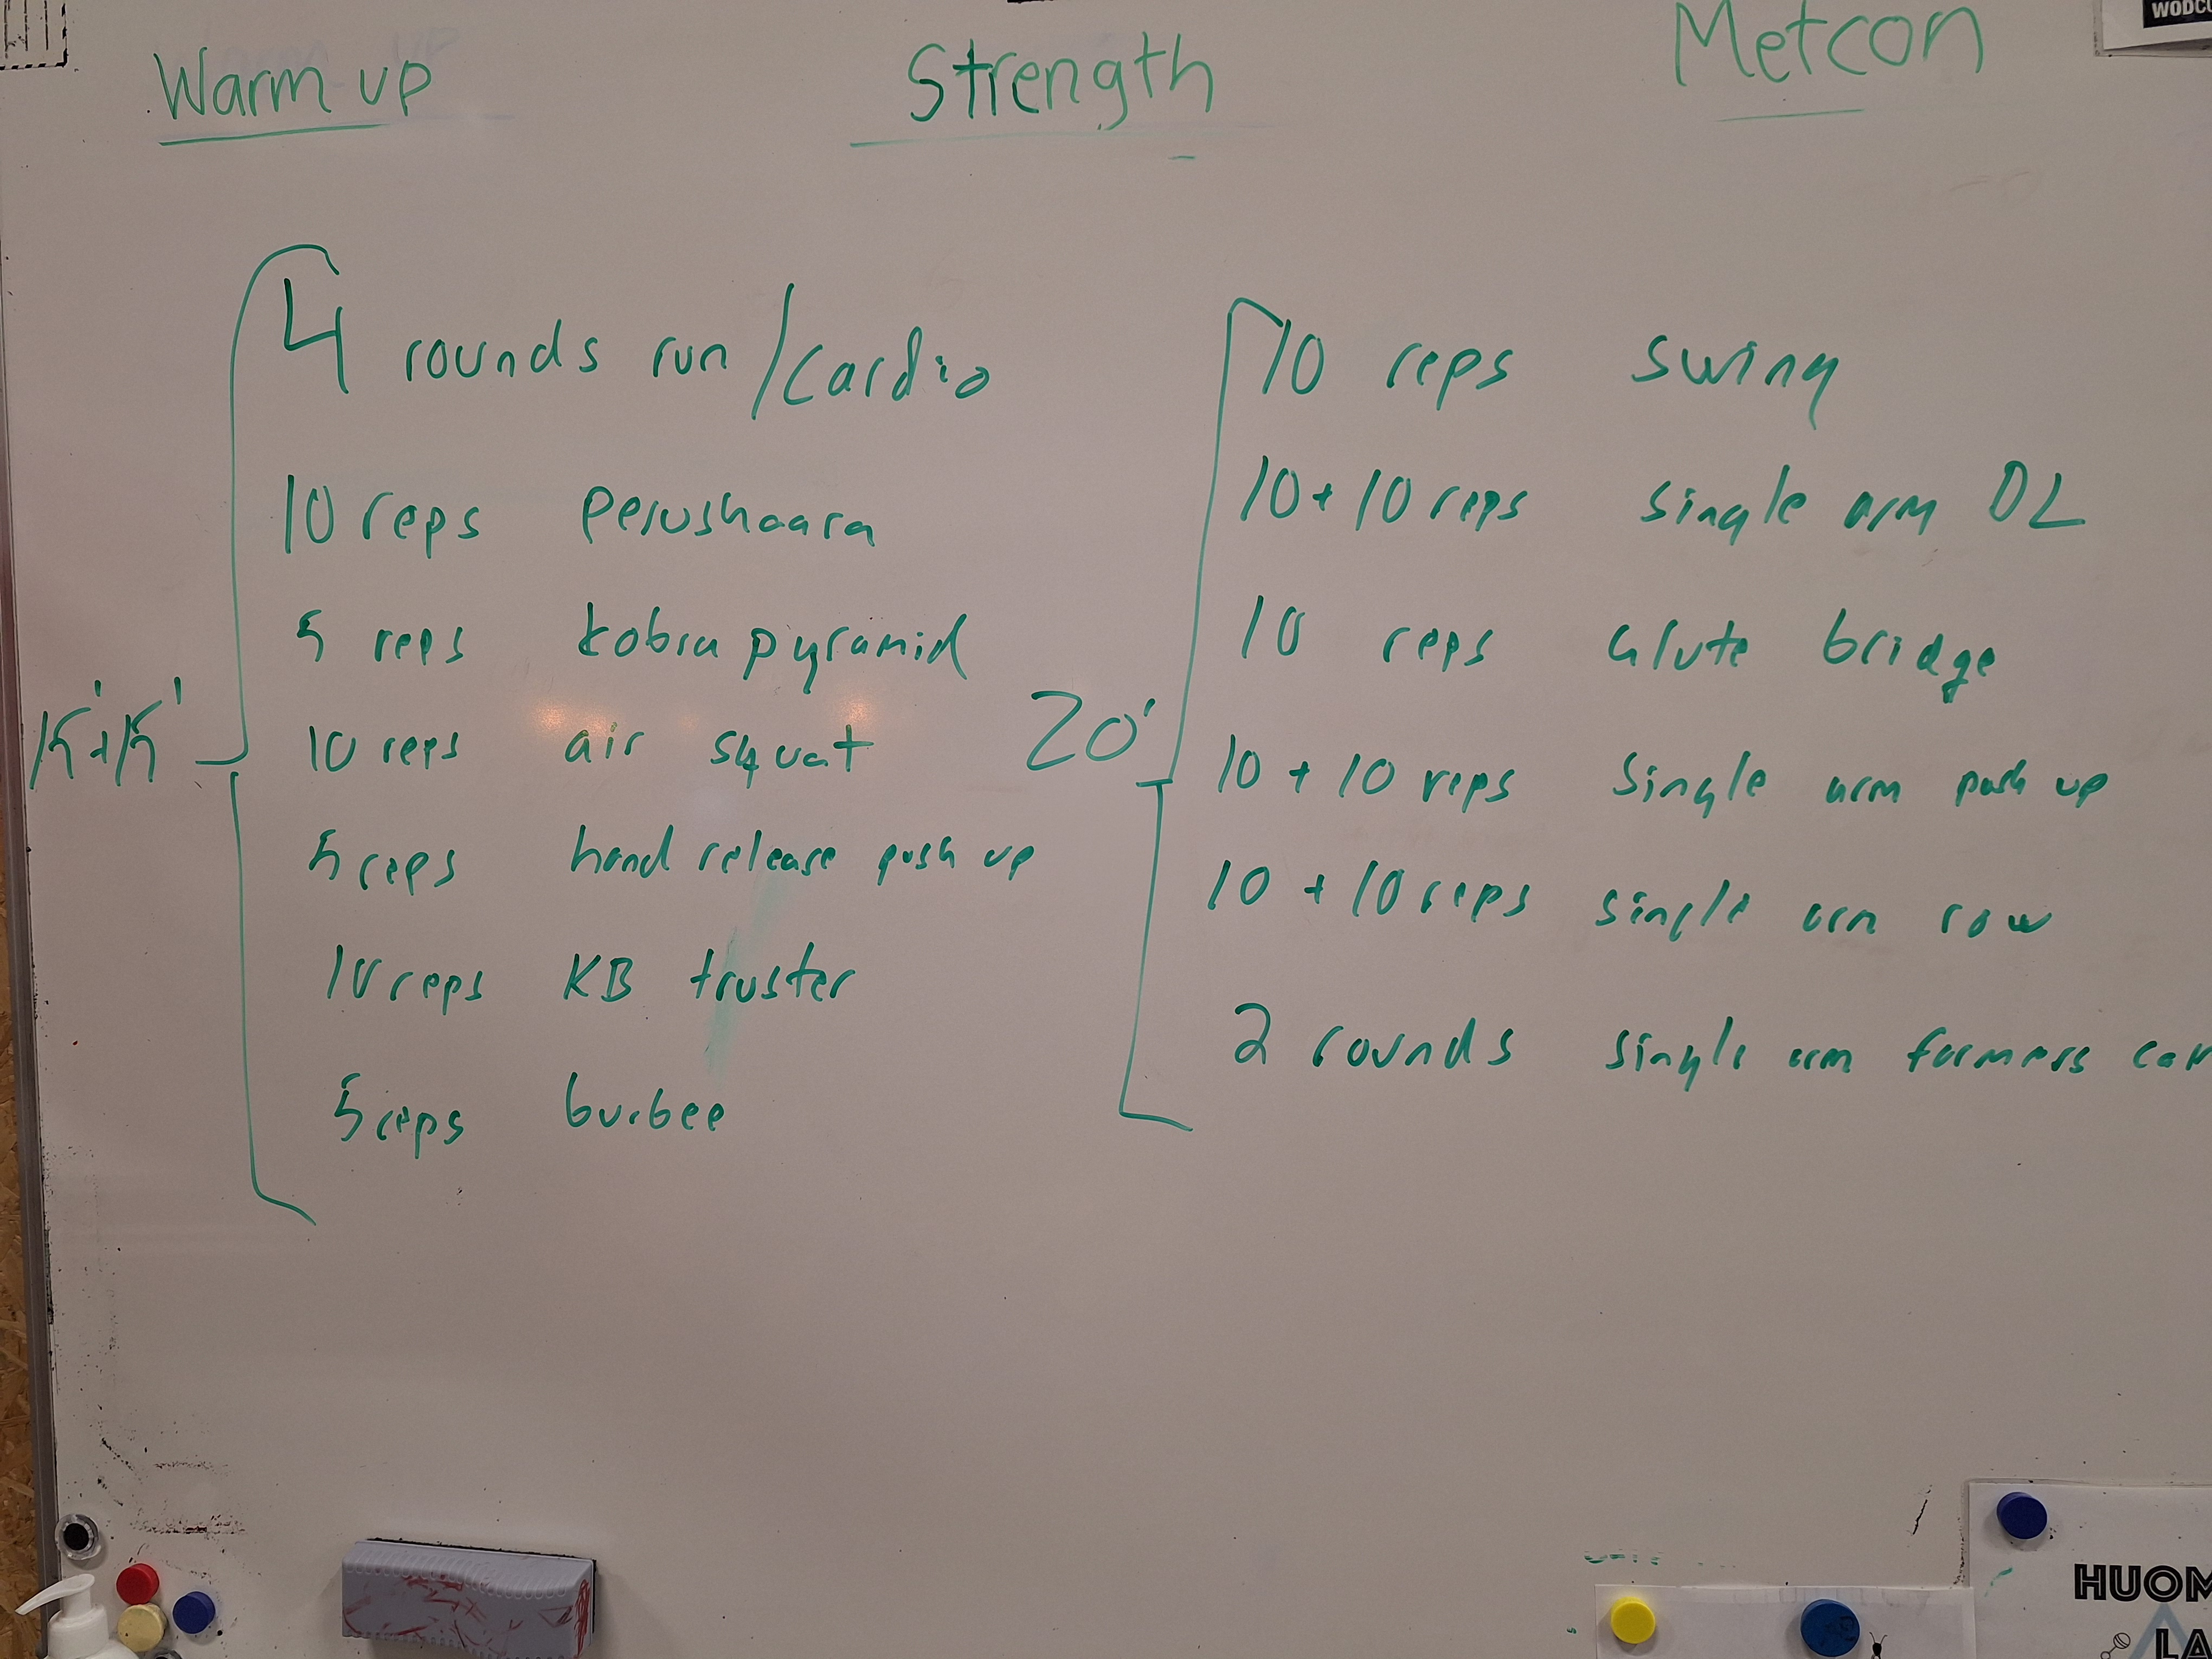 Warm up
Strength
Metcon
WODCU
15'+15'
4 rounds run/cardio
10 reps perushaara
5 reps kobra pyramid
10 reps air squat
5 reps hand release push up
10 reps KB truster
5 reps burbee
20'
10 reps swing
10+10 reps single arm DL
10 reps Glute bridge
10 + 10 reps Single arm push up
10 + 10 reps single arm row
2 rounds single arm farmers car
HUOM
LA